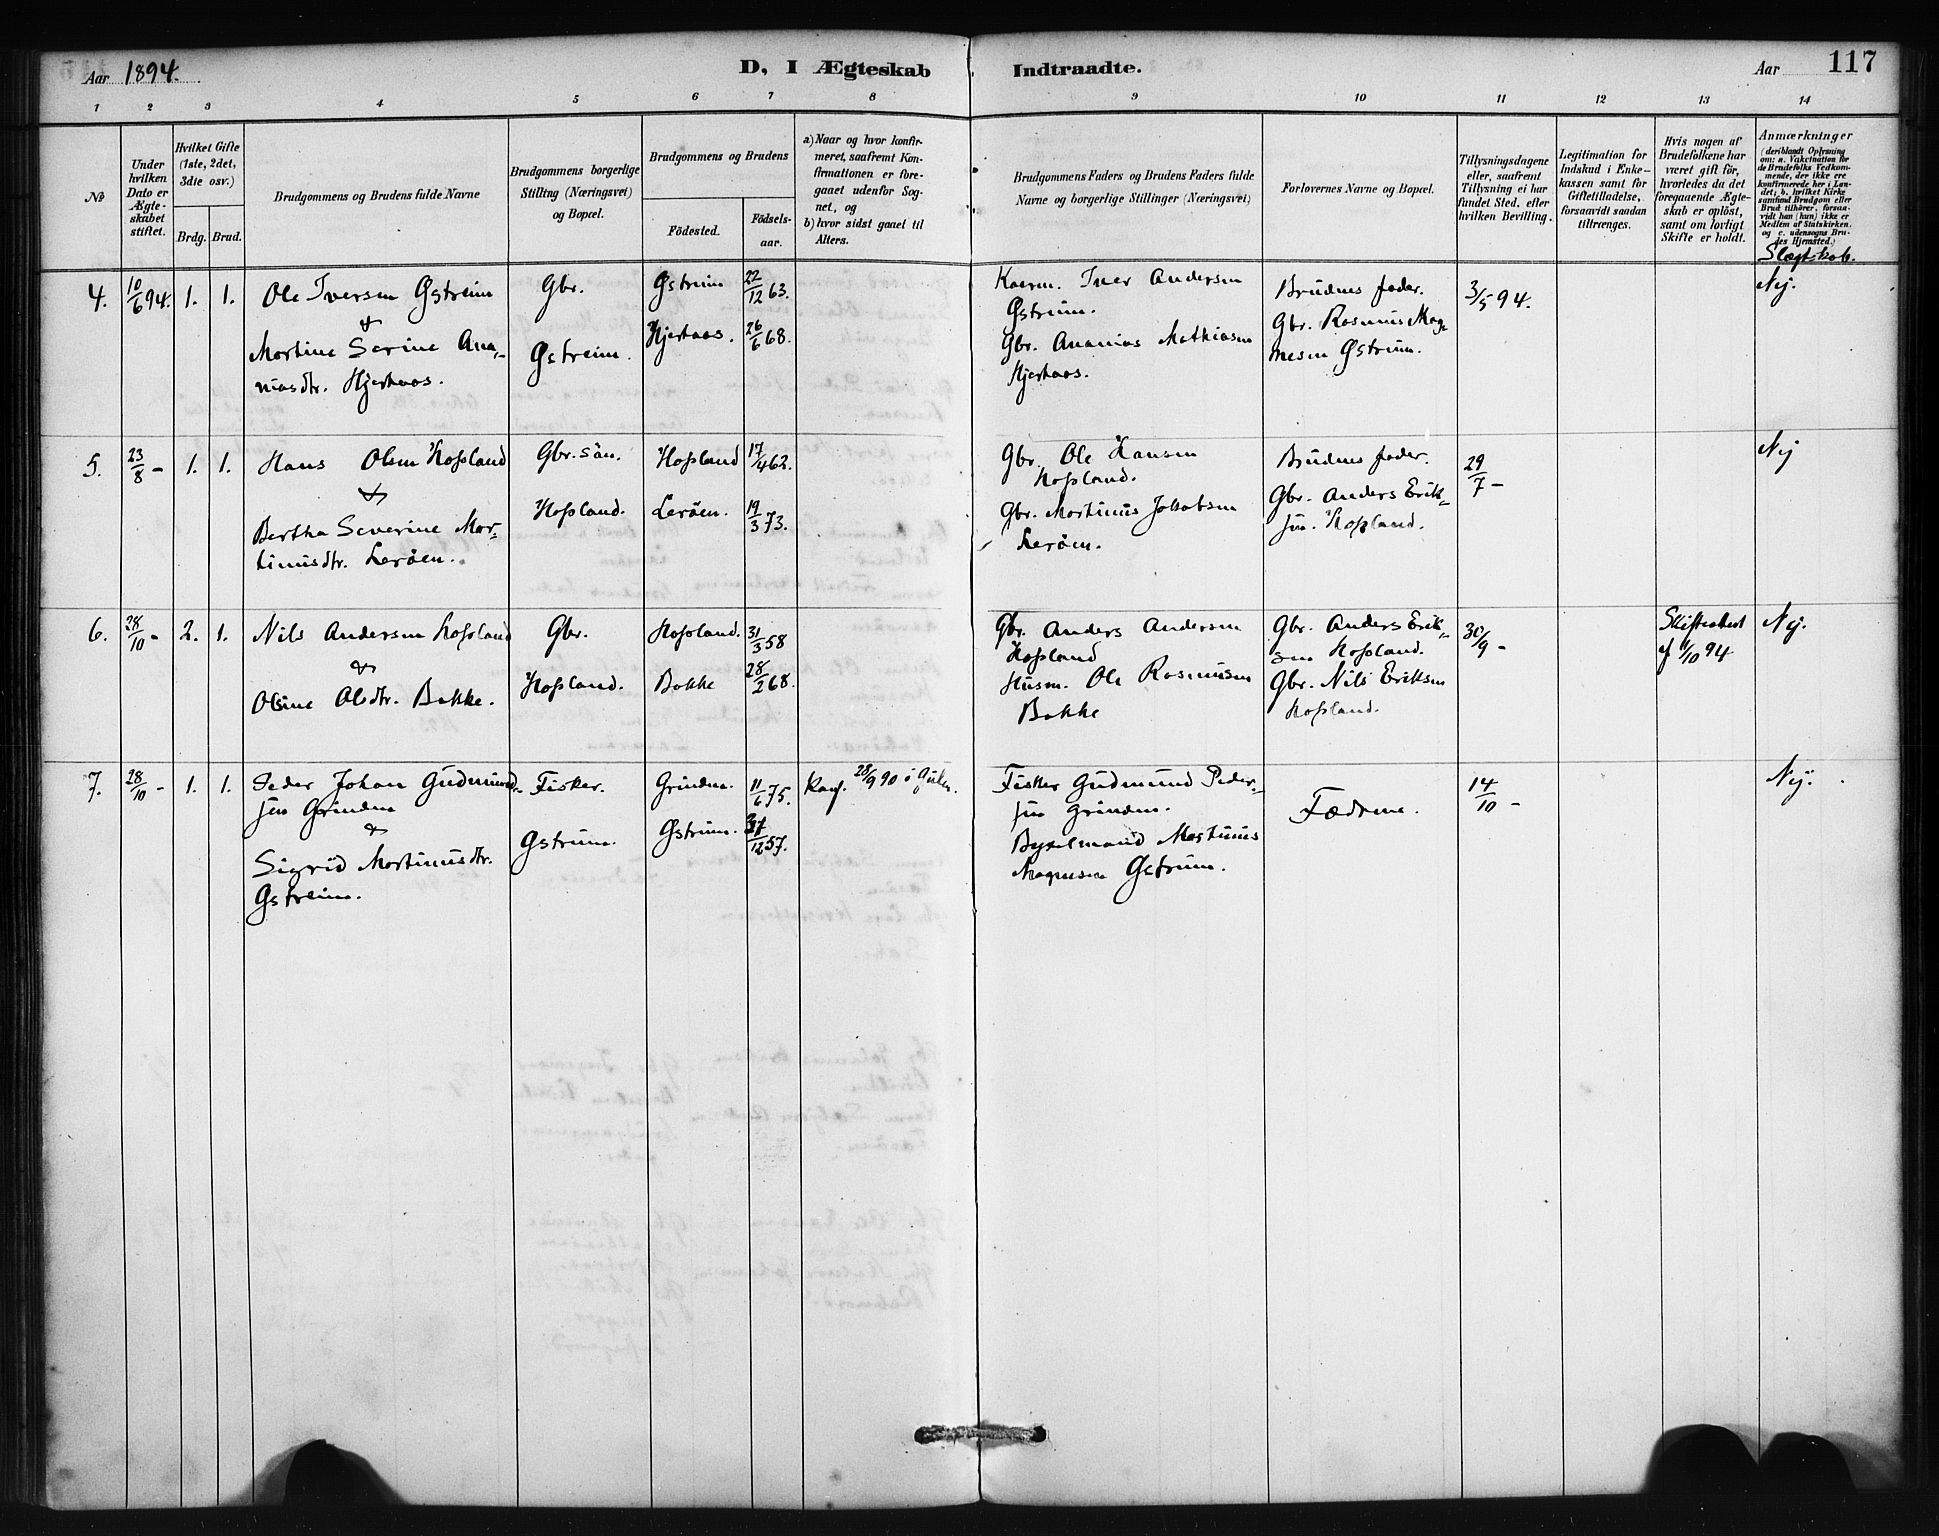 Aar 1894.
D, I Ægteskab Indtraadte.
Aar 117
1 2 3 4 5 6 7 8 9 10 11 12 13 14
No
Under hvilken Dato er Ægteskabet stiftet.
Hvilket Gifte (1ste, 2det, 3die osv.)
Brdg. Brud.
Brudgommens og Brudens fulde Navne
Brudgommens borgerlige Stilling (Næringsvei) og Bopœl.
Brudgommens og Brudens
Födested.
Födsels-aar.
a) Naar og hvor konfirmeret, saafremt Konfirmationen er foregaaet udenfor Sognet, og
b) hvor sidst gaaet til Alters.
Brudgommens Faders og Brudens Faders fulde Navne og borgerlige Stillinger (Næringsvei)
Forlovernes Navne og Bopœl.
Tillysningsdagene eller, saafremt Tillysning ei har fundet Sted, efter hvilken Bevilling.
Legitimation for Indskud i Enkekassen samt for Giftetilladelse, forsaavidt saadan tiltrænges.
Hvis nogen af Brudefolkene har været gift för, hvorledes da det foregaaende Ægteskab er oplöst, samt om lovligt Skifte er holdt.
Anmærkninger (deriblandt Oplysning om: a. Vakcination for de Brudefolks Vedkommende, der ikke ere konfirmerede her i Landet; b. hvilket Kirkesamfund Brudgom eller Brud tilhörer, forsaavidt han (hun) ikke er Medlem af Statskirken, og c. udensogns Brudes Hjemsted.)
Slægtskab.
4. 10/6 94. 1. 1.
Ole Iversen Østreim
&
Martine Serine Ana-
niasdtr. Hjertaas.
Gbr.
Østreim.
Østreim 22/12 63.
Hjertaas. 26/6 68.
Kaarm. Iver Andersen
Østreim.
Gbr. Ananias Mathiasen
Hjertaas.
Brudens fader.
Gbr. Rasmus Mag-
nesen Østreim.
3/5 94.
Nej.
5. 23/8 - 1. 1.
Hans Olsen Hopland
&
Bertha Severine Mar-
tinusdtr. Leröen.
Gbr. sön.
Hopland.
Hopland 17/4 62.
Leröen. 19/3 73.
Gbr. Ole Hansen
Hopland.
Gbr. Martinus Jakobsen
Leröen.
Brudens fader.
Gbr. Anders Erik-
sen. Hopland.
29/7 -
Nej
6. 28/10 - 2. 1.
Nils Andersen Hopland
&
Olsine Olsdtr. Bakke.
Gbr.
Hopland.
Hopland. 31/3 58
Bakke 28/2 68.
Gbr. Anders Andersen
Hopland
Husm. Ole Rasmusen
Bakke
Gbr. Anders Erik-
sen Hopland.
Gbr. Nils Eriksen
Hopland.
30/9 -
Skifteattest
af 1/10 94
Nej.
7. 28/10 - 1. 1.
Peder Johan Gudmund-
sen Grinden
&
Sigrid Martinusdtr.
Østreim.
Fisker.
Østreim.
Grinden. 11/6 75.
Østreim. 12 57.
Konf. 28/9 90 i Gulen.
Fisker Gudmund Peder-
sen Grinden.
Bygselmand Martinus
Magnesen Østreim.
Fædrene.
14/10 -
Nej.